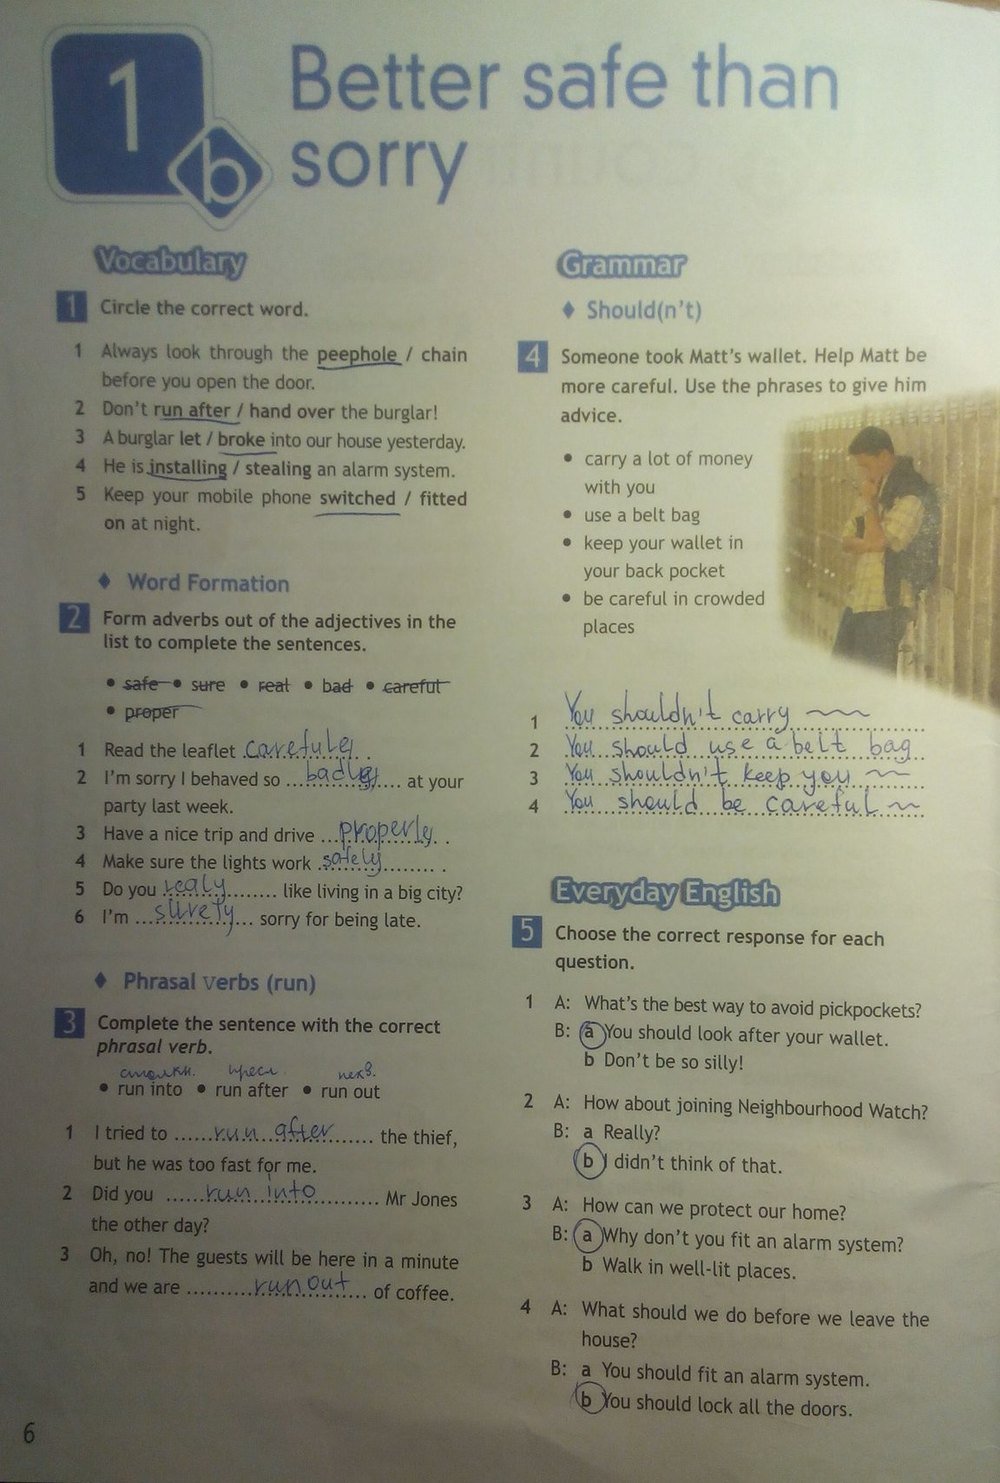 1
b
Better safe than
sorry
Vocabulary
1 Circle the correct word.
1 Always look through the peephole / chain
before you open the door.
2 Don't run after / hand over the burglar!
3 A burglar let / broke into our house yesterday.
4 He is installing / stealing an alarm system.
5 Keep your mobile phone switched / fitted
on at night.
♦ Word Formation
2 Form adverbs out of the adjectives in the
list to complete the sentences.
• safe • sure • real • bad • careful
• proper
1 Read the leaflet carefuly .
2 I'm sorry I behaved so ...badly.... at your
party last week.
3 Have a nice trip and drive ...properly. .
4 Make sure the lights work .safely......... .
5 Do you .realy........ like living in a big city?
6 I'm ...surety... sorry for being late.
♦ Phrasal verbs (run)
3 Complete the sentence with the correct
phrasal verb.
• run into • run after • run out
1 I tried to ......run after....... the thief,
but he was too fast for me.
2 Did you ......run into.......... Mr Jones
the other day?
3 Oh, no! The guests will be here in a minute
and we are ..........run out... of coffee.
6
Grammar
♦ Should(n't)
4 Someone took Matt's wallet. Help Matt be
more careful. Use the phrases to give him
advice.
• carry a lot of money
with you
• use a belt bag
• keep your wallet in
your back pocket
• be careful in crowded
places
1 You shouldn't carry ~
2 You should use a belt bag
3 You shouldn't keep you ~
4 You should be careful ~
Everyday English
5 Choose the correct response for each
question.
1 A: What's the best way to avoid pickpockets?
B: a You should look after your wallet.
b Don't be so silly!
2 A: How about joining Neighbourhood Watch?
B: a Really?
b I didn't think of that.
3 A: How can we protect our home?
B: a Why don't you fit an alarm system?
b Walk in well-lit places.
4 A: What should we do before we leave the
house?
B: a You should fit an alarm system.
b You should lock all the doors.